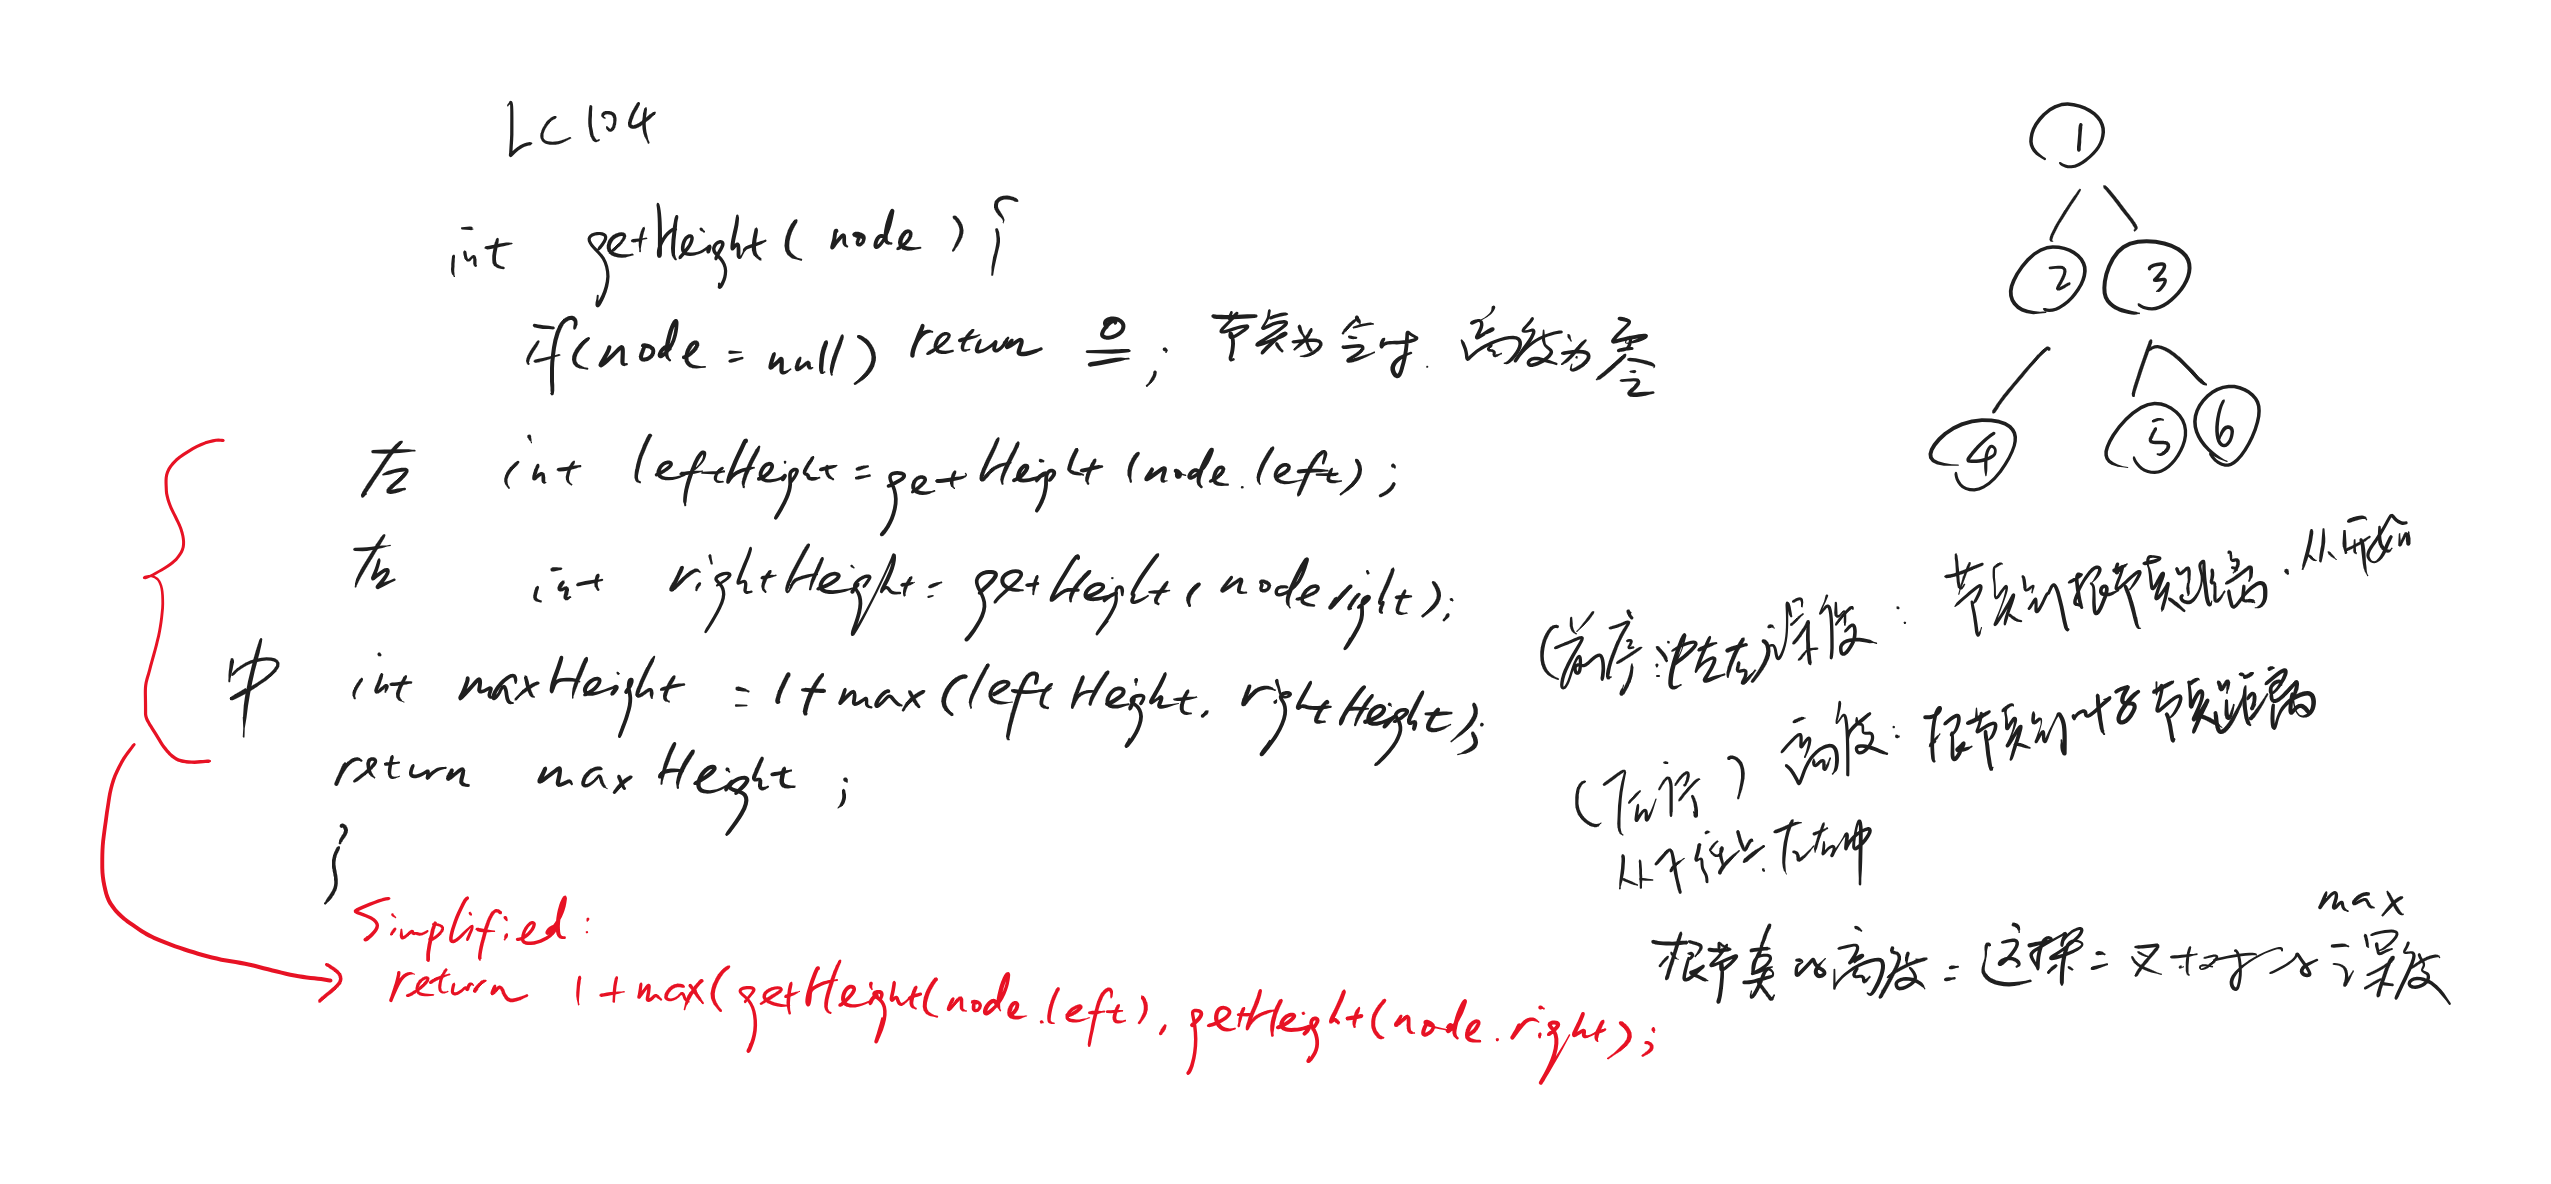 LC104
int getHeight( node ) {
if(node = null) return 0 ; 节点为空时. 高度为零
左 int leftHeight = getHeight (node.left) ;
右 int rightHeight = getHeight ( node right);
中 int maxHeight = 1 + max(leftHeight, rightHeight);
return maxHeight ;
}
Simplified:
return 1 + max(getHeight(node.left), getHeight(node.right);
1
2 3
4 5 6
(前序:中左右)深度: 节点到根节点距离. 从开始
(后序) 高度: 根节点到叶子节点距离
从下往上. 左右中
max
根节点的高度 = 这棵 = 叉 的 深度